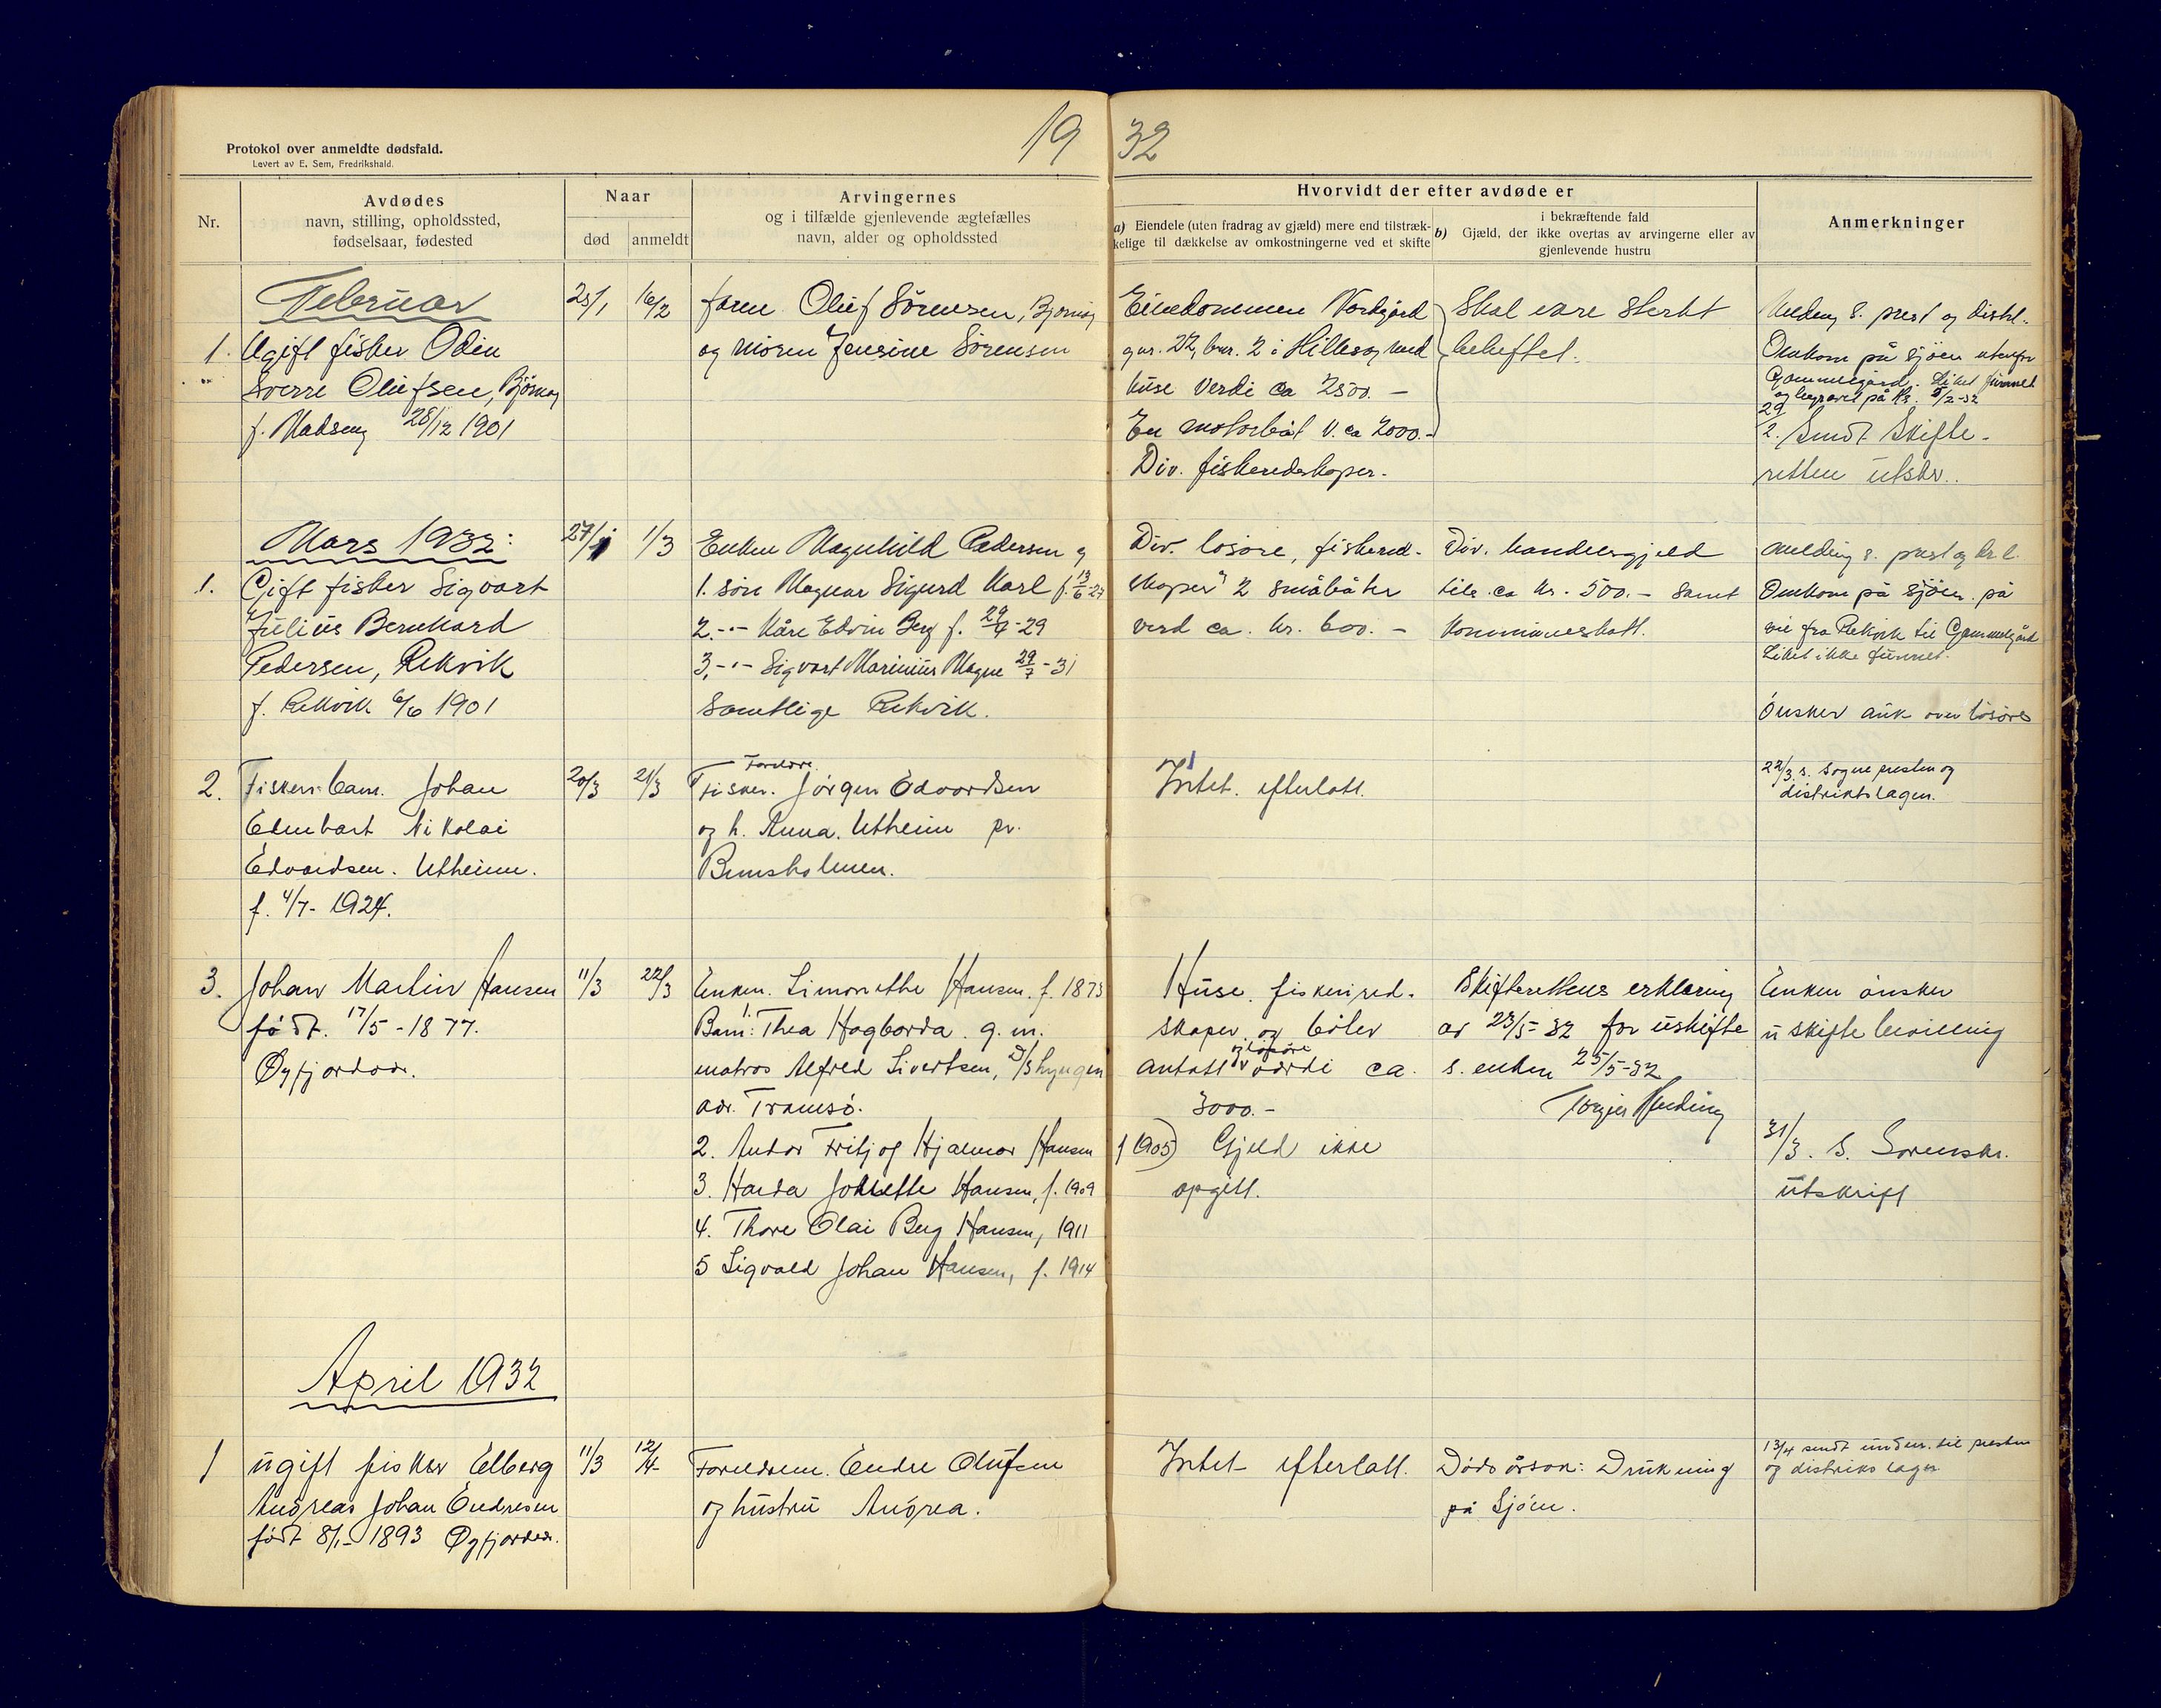 19 32
Protokol over anmeldte dødsfald.
Levert av E. Sem, Fredrikshald.
Nr.
Avdødes
navn, stilling, opholdssted,
fødselsaar, fødested
Naar
død
anmeldt
Arvingernes
og i tilfælde gjenlevende ægtefælles
navn, alder og opholdssted
Hvorvidt der efter avdøde er
a) Eiendele (uten fradrag av gjæld) mere end tilstræk-
kelige til dækkelse av omkostningerne ved et skifte
i bekræftende fald
b) Gjæld, der ikke overtas av arvingerne eller av
gjenlevende hustru
Anmerkninger
Februar
1. Ugift fisker Odin
Sverre Olufsen,
f. 28/12 1901
16/2
faren Oluf Sörensen,
og moren Jensine Sörensen
Eiendommen
gnr. 22, bnr. 2 i Hillesøy med
huse verdi ca 2500.-
En motorbåt v. ca 2000.-
Div. fiskeredskaper.
Skal være sterkt
beheftet.
Melding s. prest og distrl.
Omkom på sjöen utenfor
Gammelgård. Liket funnet
og begravet på
2. Sendt Skifte-
retten utskr.
Mars 1932:
1. Gift fisker Sigvart
Julius Bernhard
Pedersen, Rekvik
f. Rekvik 6/6 1901
27/1
1/3
Enken Magnhild Pedersen og
1. sön Magnar Sigurd Karl f. 13/6-27
2. -"- Kåre Edvin Berg f. 29/4-29
3. -"- Sigvart Marinius Magne 29/7-31
Samtlige Rekvik.
Div. lösöre, fiskered-
skaper og 2 småbåter
verd ca. kr. 600.-
Div. handelsgjeld
tils. ca kr. 500.- samt
kommuneskatt.
Melding s. prest og
Omkom på sjöen på
vei fra Rekvik til Gammelgård
Liket ikke funnet.
Önsker auk over lösöre
2. Fisker barn. Johan
Edmbart Nikolai
Edvardsen. Utheim.
f. 4/7-1924.
20/3
21/3
Foreldre
Fisker. Jörgen Edvardsen
og h. Anna. Utheim pr.
Bensholmen.
Intet. efterlatt.
22/3 s. Sogne presten og
distriktslægen.
3. Johan Martin Hansen
född. 17/5-1877.
Øyfjorden.
11/3
22/3
Enken. Simonethe Hansen. f. 1873
Barn: 1. Thea Hagborda g. m.
matros Alfred Sivertsen, D/S Lyngen
adr. Tromsö.
2. Andor Fritjof Hjalmar Hansen f 1905)
3. Harda Hansen, f. 1909
4. Thore Olai Berg Hansen, 1911
5 Sigvald Johan Hansen, f. 1914
Huse. fiskerired-
skaper og båter
og lösöre
antatt verdi ca.
3000.-
Gjeld ikke
opgitt.
Skifterettens erklæring
av 23/5-32 for uskifte
s. enken 25/5-32
Enken önsker
uskifte bevilling
31/3. S. Sorenskr.
utskrift
April 1932
1 ugift fisker Elberg
Andreas Johan Endresen
födt 8/1-1893 Øyfjorden.
11/3
12/4
Foreldrene. Endre Olufsen
og hustru Andrea.
Intet efterlatt.
Dödsårsak: Drukning
på Sjöen.
13/4 sendt underr. til presten
og distrikslæge